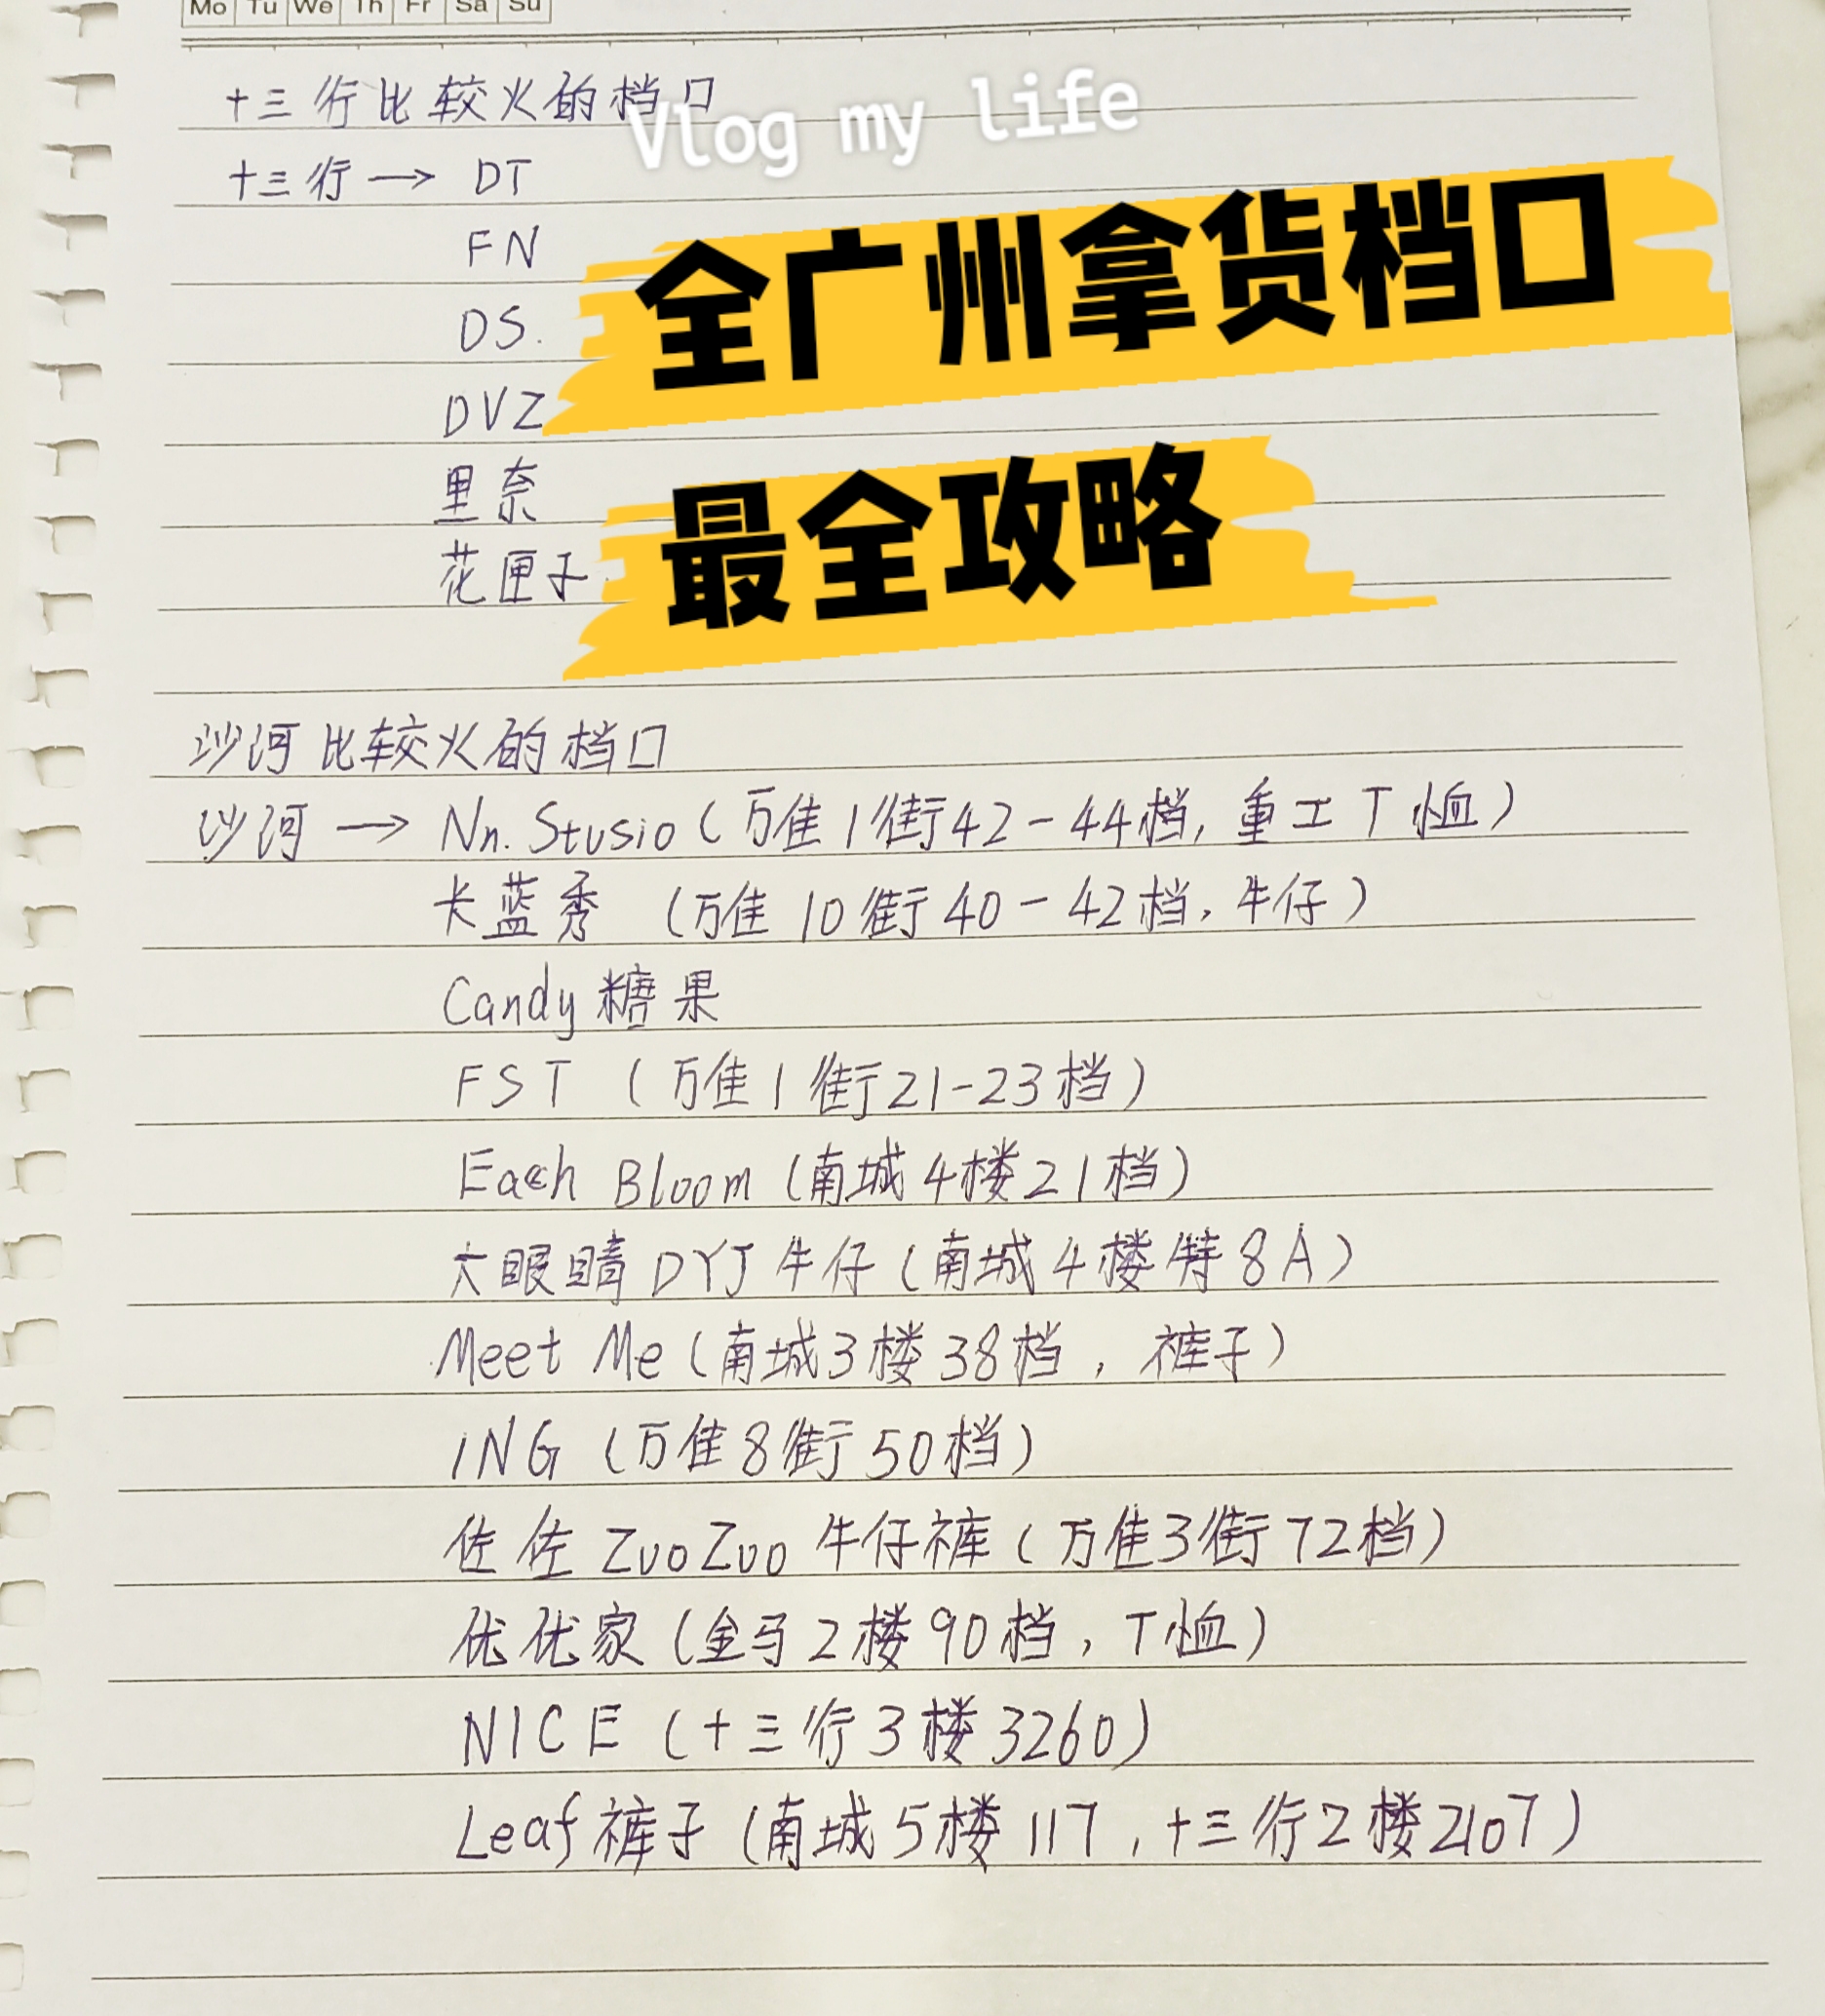 Mo Tu We Th Fr Sa Su
十三行比较火的档口
Vlog my life
十三行→ DT
FN
全广州拿货档口
DS.
DVZ
里奈
最全攻略
花匣子.
沙河比较火的档口
沙河→ Nn. Stusio (万佳1街42-44档, 重工T恤)
卡蓝秀 (万佳10街40-42档, 牛仔)
Candy糖果
FST (万佳1街21-23档)
Each Bloom (南城4楼21档)
大眼睛DYJ牛仔 (南城4楼特8A)
Meet Me (南城3楼38档, 裤子)
ING (万佳8街50档)
佐佐ZuoZuo牛仔裤 (万佳3街72档)
优优家 (金马2楼90档, T恤)
NICE (十三行3楼3260)
Leaf裤子 (南城5楼117, 十三行2楼2107)